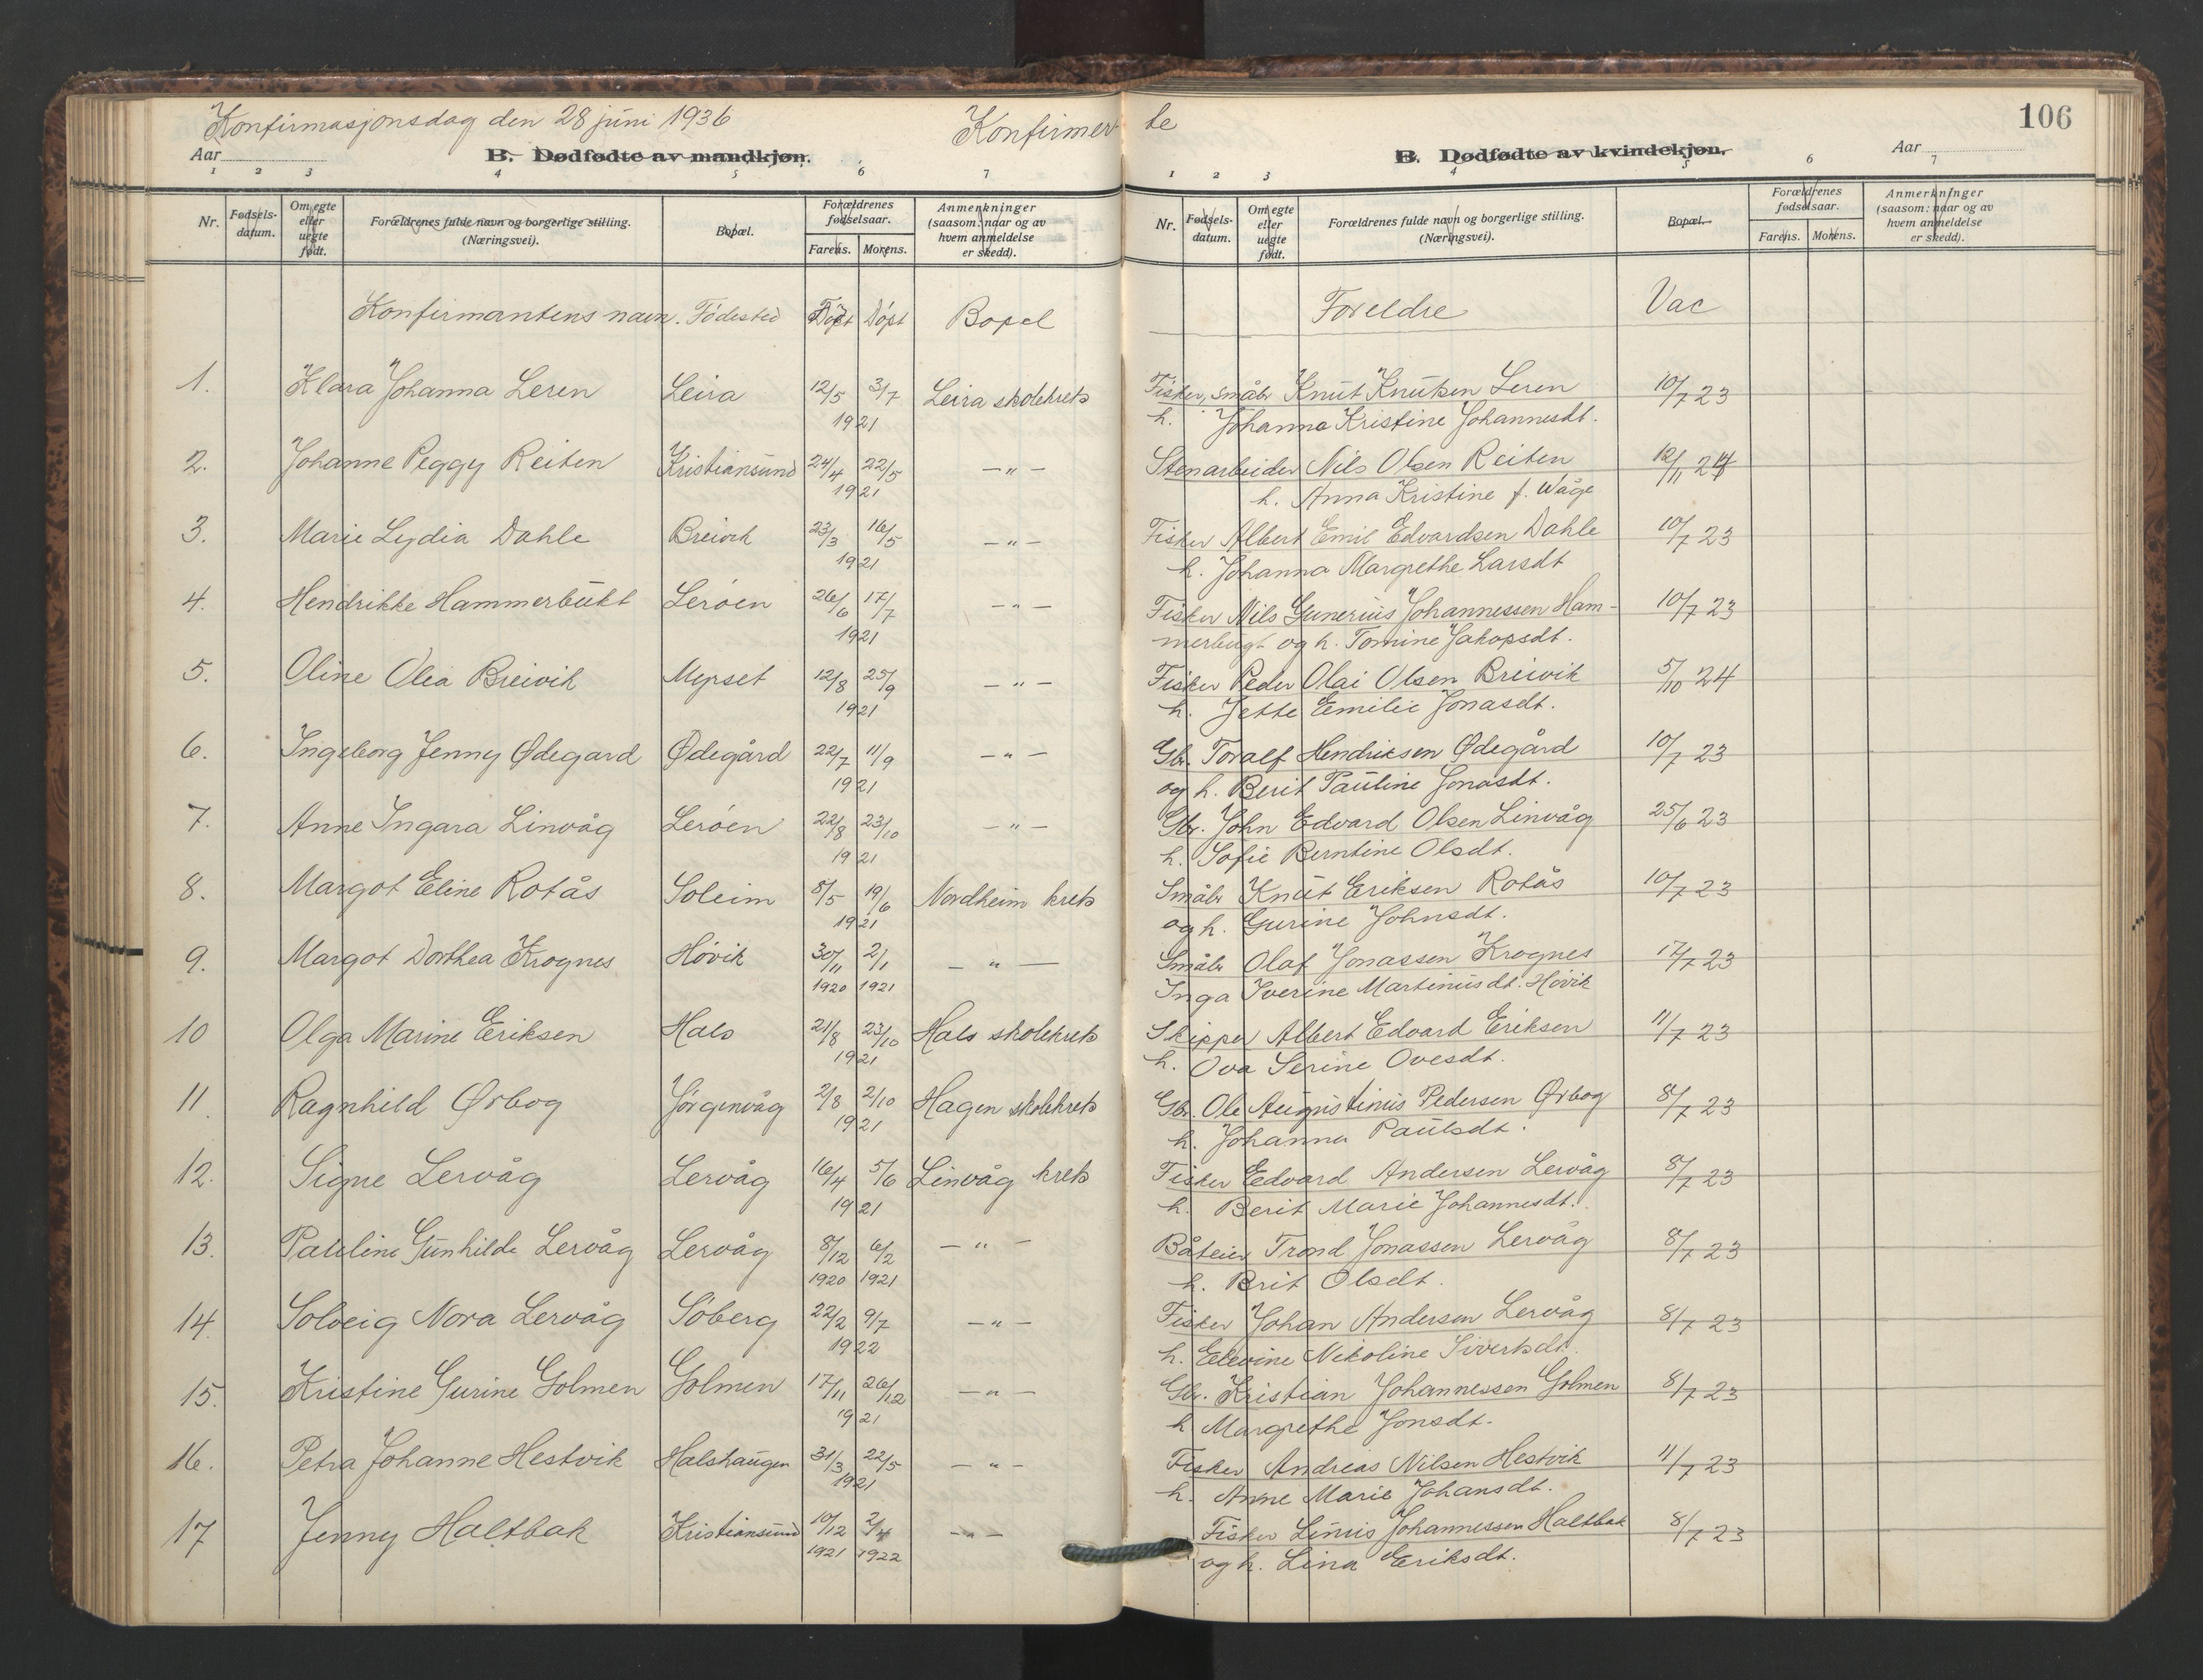 Konfirmasjonsdag den 28 juni 1936 Konfirmer te 106
Aar B. Dødfødte av mandkjøn. B. Dødfødte av kvindekjøn. Aar
1 2 3 4 5 6 7 1 2 3 4 5 6 7
Nr. Fødsels-datum. Om egte eller uegte født. Forældrenes fulde navn og borgerlige stilling. (Næringsvei). Bopæl. Forældrenes fødselsaar. Farens. Morens. Anmerkninger (saasom: naar og av hvem anmeldelse er skedd).
Nr. Fødsels-datum. Om egte eller uegte født. Forældrenes fulde navn og borgerlige stilling. (Næringsvei). Bopæl. Forældrenes fødselsaar. Farens. Morens. Anmerkninger (saasom: naar og av hvem anmeldelse er skedd).
Konfirmantens navn. Födested Födt Döpt Bopel Foreldre Vac
1. Klara Johanna Leren Leira 12/5 3/7 Leira skolekrets Fisker, småbr Knut Knutsen Leren 10/7 23
1921 h. Johanna Kristine Johannesdt.
2. Johanne Peggy Reiten Kristiansund 24/4 22/5 — " — Stenarbeider Nils Olsen Reiten 12/11 24
1921 h. Anna Kristine f. Wåge
3. Marie Lydia Dahle Breivik 23/3 16/5 — " — Fisker Albert Emil Edvardsen Dahle 10/7 23
1921 h. Johanna Margrethe Larsdt
4. Hendrikke Hammerbukt Leröen 26/6 17/7 — " — Fisker Nils Gunerius Johannessen Ham- 10/7 23
1921 merbugt og h. Tomine Jakopsdt.
5. Oline Olea Breivik Myrset 12/8 25/9 — " — Fisker Peder Olai Olsen Breivik 5/10 24
1921 h. Jette Emilie Jonasdt.
6. Ingeborg Jenny Ødegard Ødegård 22/7 11/9 — " — Gbr. Toralf Hendriksen Ødegård 10/7 23
1921 og h. Berit Pauline Jonasdt.
7. Anne Ingara Linvåg Leröen 22/8 23/10 — " — Gbr. John Edvard Olsen Linvåg 25/6 23
1921 h. Sofie Berntine Olsdt.
8. Margot Eline Rotås Soleim 8/5 19/6 Nordheim krets Småbr Knut Eriksen Rotås 10/7 23
1921 og h. Gurine Johnsdt.
9. Margot Dorthea Krognes Hövik 30/11 2/1 — " — Småbr Olaf Jonassen Krognes 17/7 23
1920 1921 Inga Iverine Martinusdt. Hövik
10 Olga Marine Eriksen Hals 21/8 23/10 Hals skolekrets Skipper Albert Edvard Eriksen 11/7 23
1921 h. Ova Serine Ovesdt.
11. Ragnhild Ørbog Jörgenvåg 2/8 2/10 Hagen skolekrets Gbr. Ole Augustinus Pedersen Ørbog 8/7 23
1921 h. Johanna Paulsdt.
12. Signe Lervåg Lervåg 16/4 5/6 Linvåg krets Fisker Edvard Andersen Lervåg 8/7 23
1921 h. Berit Marie Johannesdt.
13. Pauline Gunhilde Lervåg Lervåg 8/12 6/2 — " — Båteier Trond Jonassen Lervåg 8/7 23
1920 1921 h. Brit Olsdt.
14. Solveig Nora Lervåg Söberg 22/2 9/7 — " — Fisker Johan Andersen Lervåg 8/7 23
1922 h. Elevine Nikoline Sivertsdt.
15. Kristine Gurine Golmen Golmen 17/11 26/12 — " — Gbr. Kristian Johannessen Golmen 8/7 23
1921 h Margrethe Jonsdt.
16. Petra Johanne Hestvik Halshaugen 31/3 22/5 — " — Fisker Andreas Nilsen Hestvik 11/7 23
1921 h. Anne Marie Johansdt.
17 Jenny Haltbak Kristiansund 10/12 2/4 — " — Fisker Linus Johannessen Haltbak 8/7 23
1921 1922 og h. Lina Eriksdt.